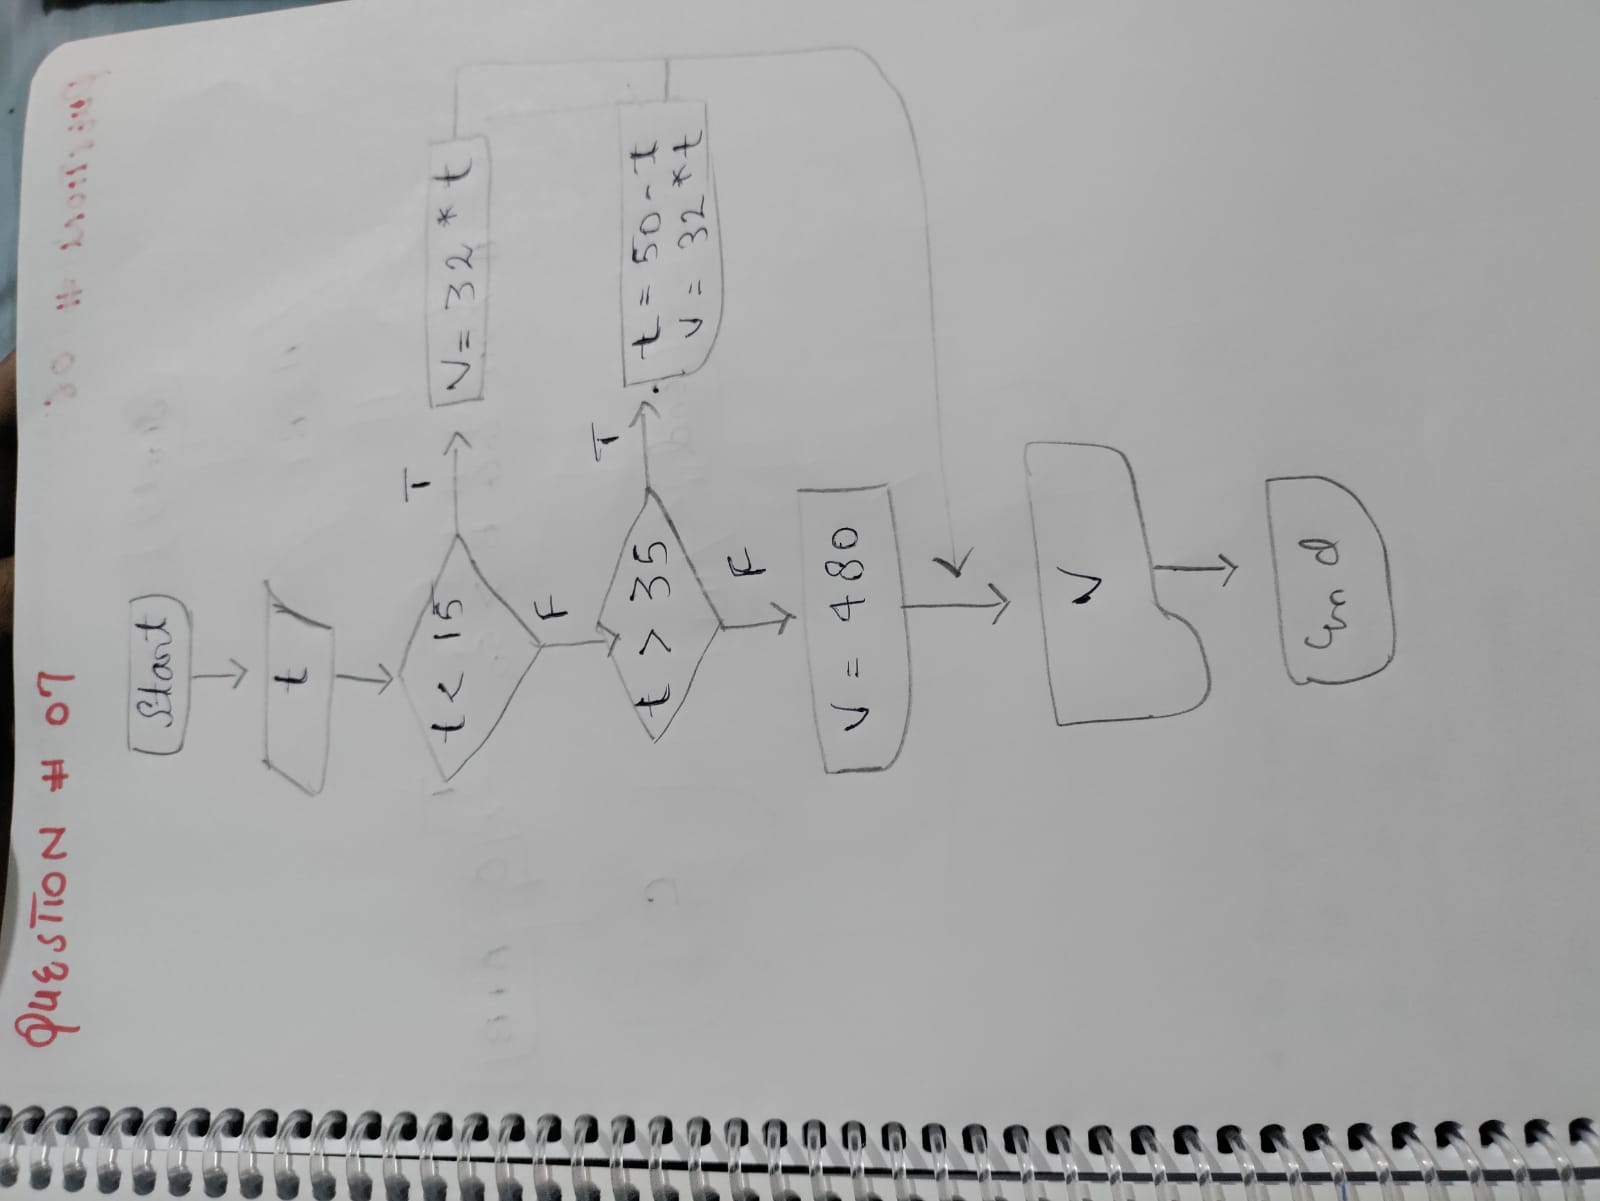 QUESTION # 07
Start
t
t < 15
T
V = 32 * t
F
t > 35
T
t = 50 - t
v = 32 * t
F
V = 480
V
End